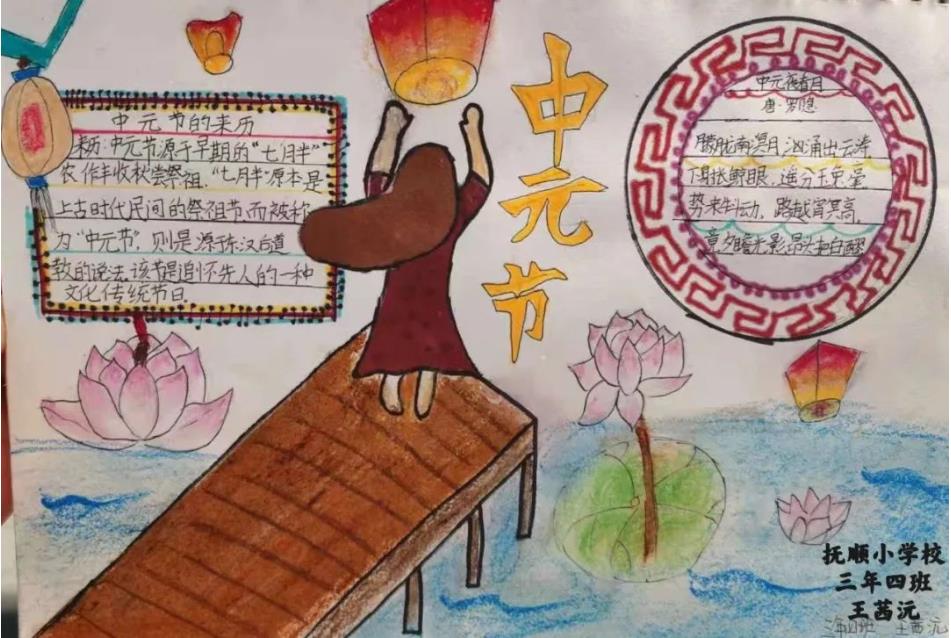 中元节的来历
来历:中元节源于早期的“七月半”
农作丰收秋尝祭祖,“七月半”原本是
上古时代民间的祭祖节而被称
为“中元节”,则是源于东汉后道
教的说法,该节是追怀先人的一种
文化传统节日
中元节
中元夜看月
唐·罗隐
朦胧南溟月,汹涌出云涛
下射长鲸眼,遥分玉兔毫
势来牛动,路越宵冥高
竟夕瞻光影,昂头把白醪
抚顺小学校
三年四班
王茜沅
三年四班 王茜沅